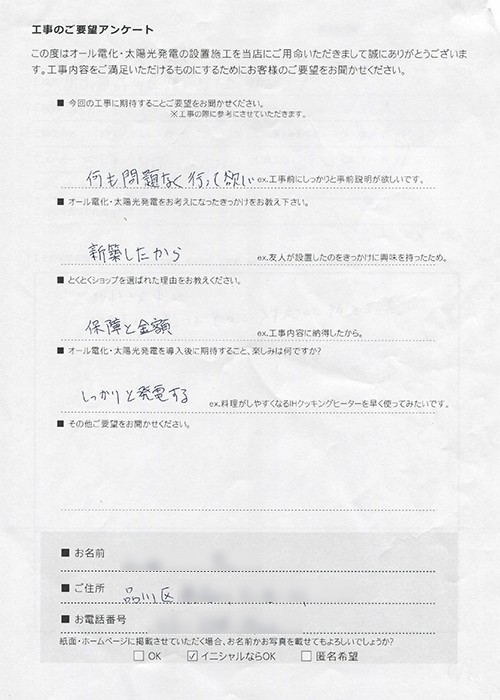 工事のご要望アンケート
この度はオール電化・太陽光発電の設置施工を当店にご用命いただきまして誠にありがとうございま
す。工事内容をご満足いただけるものにするためにお客様のご要望をお聞かせください。
■ 今回の工事に期待することご要望をお聞かせください。
※工事の際に参考にさせていただきます。
何も問題なく行って欲しい ex.工事前にしっかりと事前説明が欲しいです。
■ オール電化・太陽光発電をお考えになったきっかけをお教え下さい。
新築したから ex.友人が設置したのをきっかけに興味を持ったため。
■ とくとくショップを選ばれた理由をお教えください。
保障と金額 ex.工事内容に納得したから。
■ オール電化・太陽光発電を導入後に期待すること、楽しみは何ですか?
しっかりと発電する ex.料理がしやすくなるIHクッキングヒーターを早く使ってみたいです。
■ その他ご要望をお聞かせください。
■ お名前
■ ご住所 品川区
■ お電話番号
紙面・ホームページに掲載させていただく場合、お名前かお写真を載せてもよろしいでしょうか?
□ OK ☑ イニシャルならOK □ 匿名希望